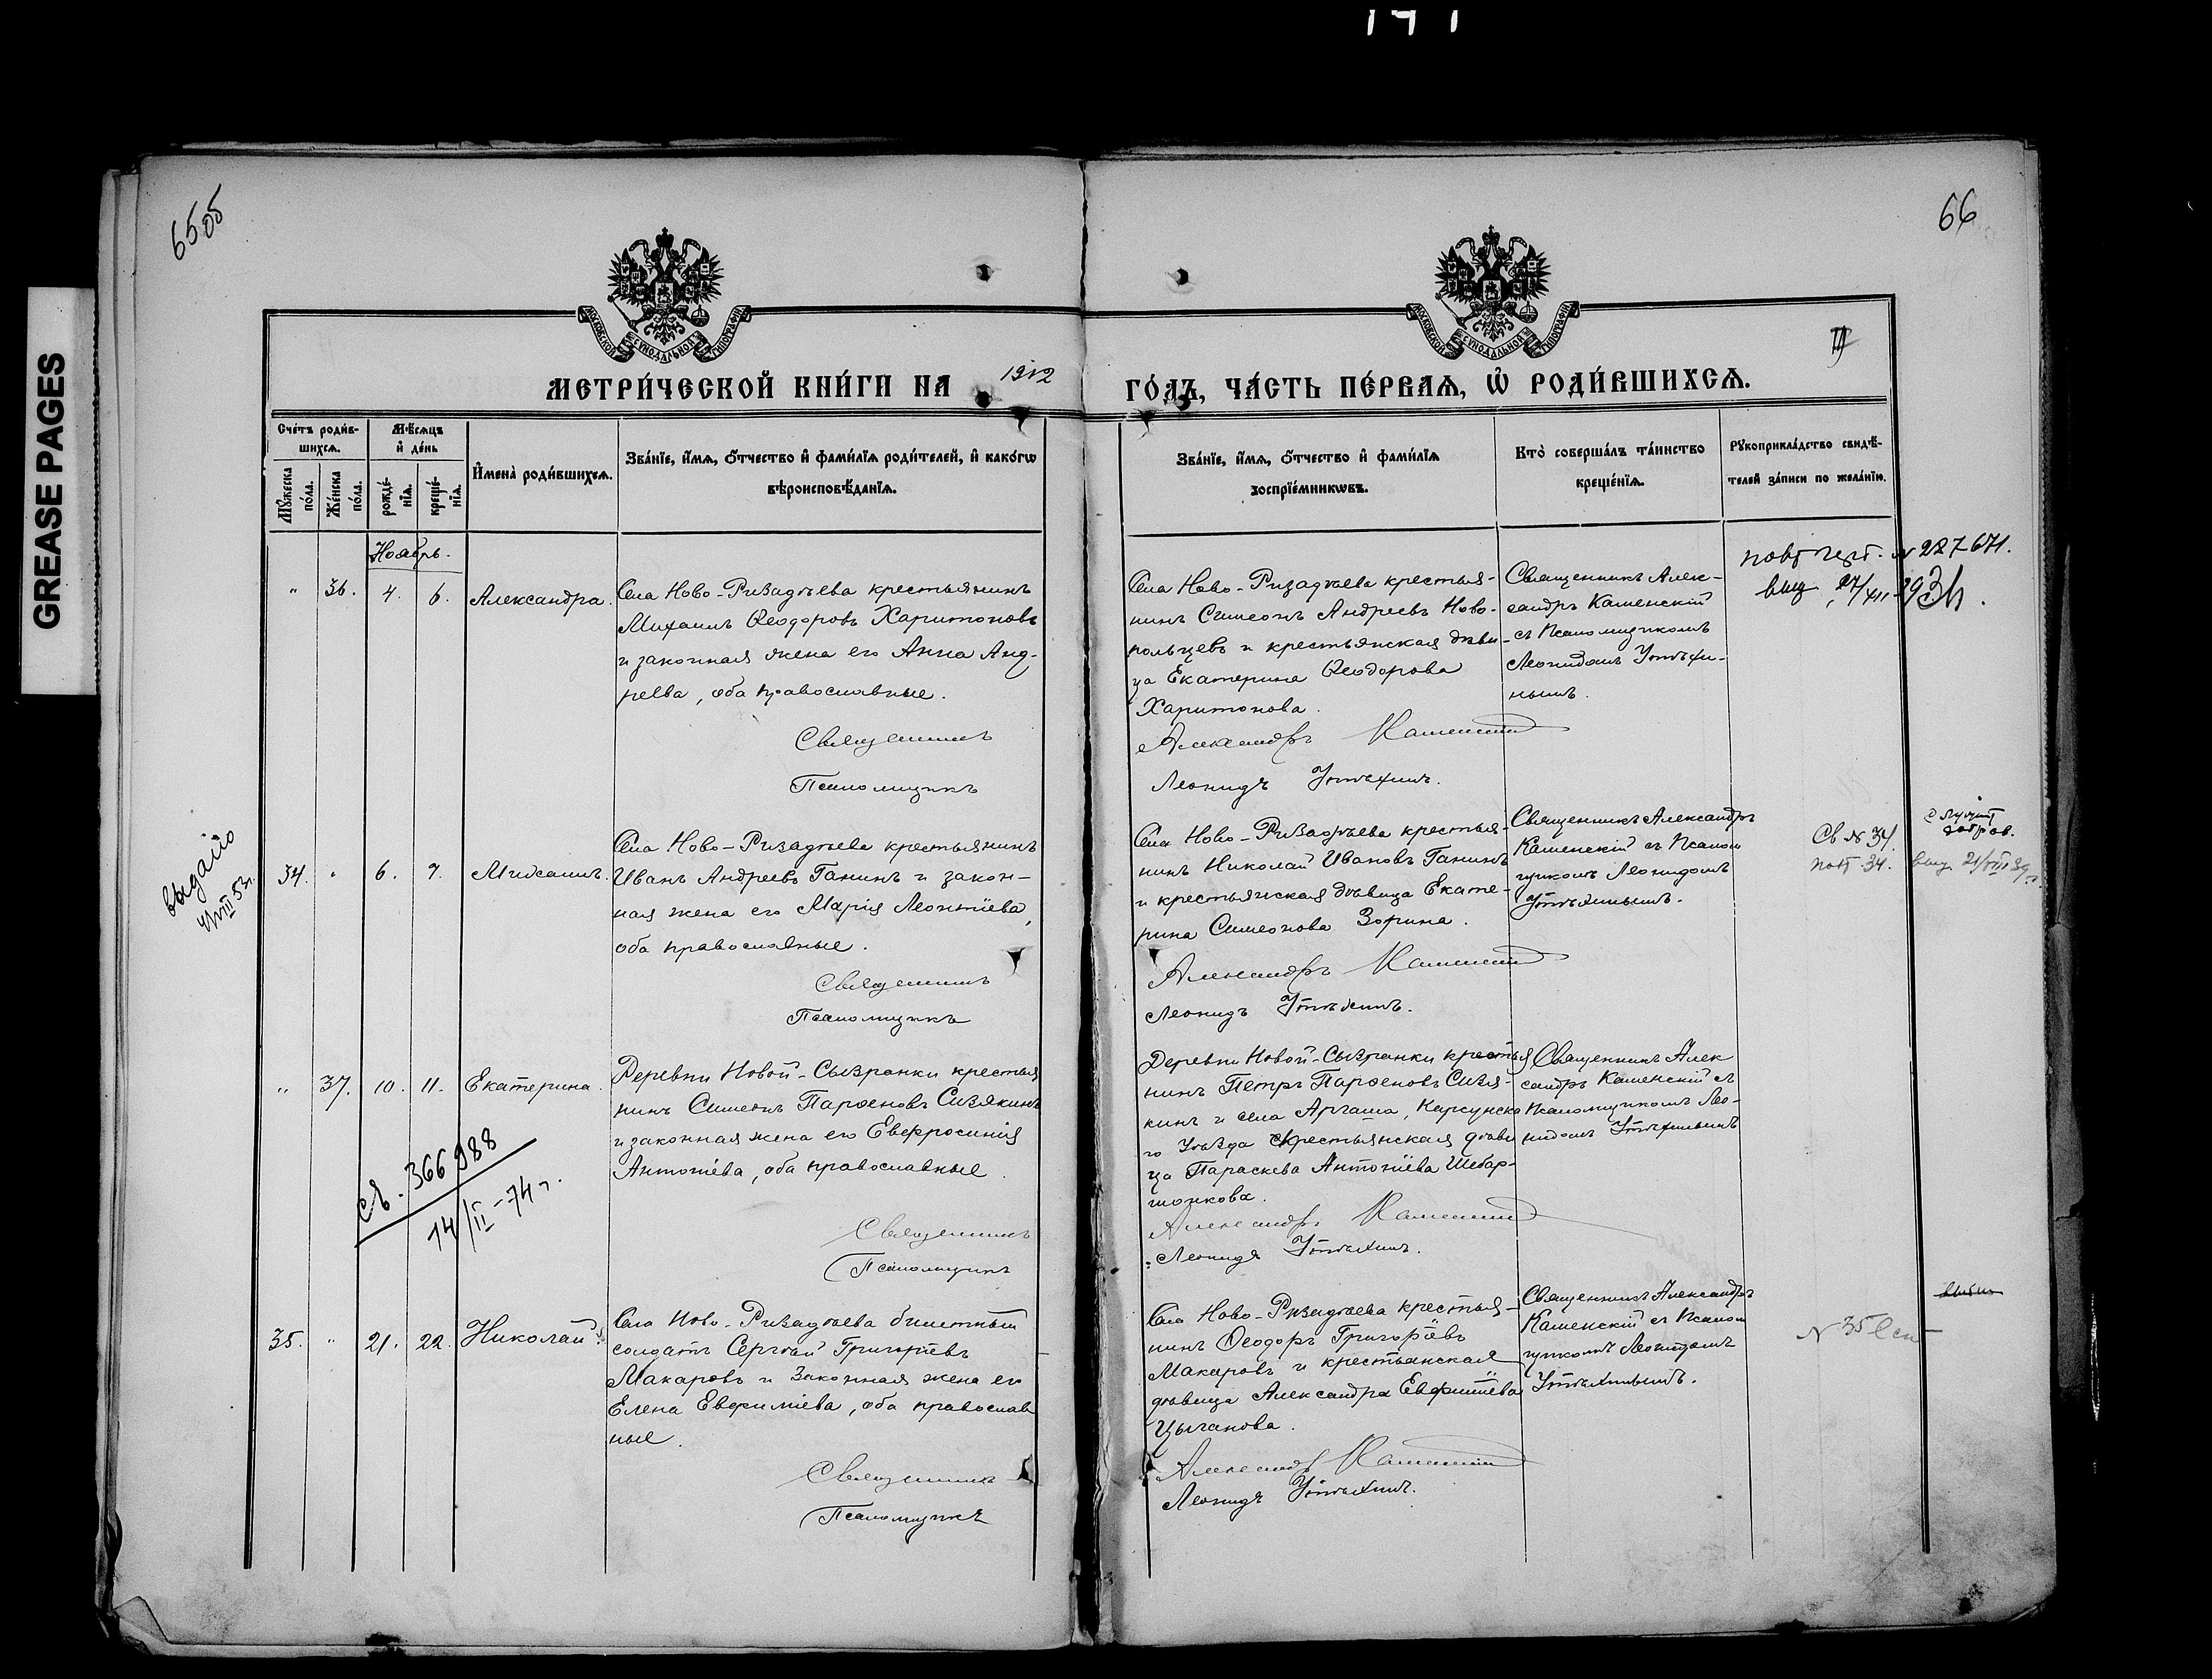 141
65об
66
GREASE PAGES
МОСКОВСКОЙ СѴНОДАЛЬНОЙ ТИПОГРАФІИ
МОСКОВСКОЙ СѴНОДАЛЬНОЙ ТИПОГРАФІИ
МЕТРИ́ЧЕСКОЙ КНИ́ГИ НА 1912 ГО́ДЪ, ЧА́СТЬ ПЕ́РВАѦ, Ѡ҆ РОДИ́ВШИХСѦ.
Сче́тъ роди́в-
шихсѧ.
Мꙋ́жеска
по́ла.
Же́нска
по́ла.
Мѣ́сѧцъ
и҆ де́нь
рожде́-
нїѧ.
креще́-
нїѧ.
И҆мена̀ роди́вшихсѧ.
Зва́нїе, и҆́мѧ, ѻ҆́тчество и҆ фами́лїѧ роди́телей, и҆ како́гѡ
вѣроисповѣ́данїѧ.
Зва́нїе, и҆́мѧ, ѻ҆́тчество и҆ фами́лїѧ
воспрїе́мникѡвъ.
Кто̀ соверша́лъ та́инство
креще́нїѧ.
Рꙋкоприкла́дство свидѣ́-
телей за́писи по жела́нїю.
Ноябрь.
" 36. 4. 6. Александра.
Села Ново-Ризадѣева крестьянинъ
Михаилъ Ѳеодоровъ Харитоновъ
и законная жена его Анна Анд-
реева, оба православные.
Священникъ
Псаломщикъ
Села Ново-Ризадѣева крестья-
нинъ Симеонъ Андреевъ Ново-
польцевъ и крестьянская дѣви-
ца Екатерина Ѳеодорова
Харитонова.
Александръ Каменскій
Леонидъ Утѣхинъ.
Священникъ Алек-
сандръ Каменскій
съ Псаломщикомъ
Леонидомъ Утѣхи-
нымъ.
повт N 227671.
выд 27/XII
выдано
VIII 53г.
34. " 6. 7. Михаилъ.
Села Ново-Ризадѣева крестьянинъ
Иванъ Андреевъ Ганинъ и закон-
ная жена его Марія Леонтіева,
оба православные.
Священникъ
Псаломщикъ
Села Ново-Ризадѣева крестья-
нинъ Николай Ивановъ Ганинъ
и крестьянская дѣвица Екате-
рина Симеонова Зорина.
Александръ Каменскій
Леонидъ Утѣхинъ.
Священникъ Александръ
Каменскій съ Псалом
щикомъ Леонидомъ
Утѣхинымъ.
Св N 34.
повт 34. выд 21/VIII 39г.
" 37. 10. 11. Екатерина.
Деревни Новой-Сызранки крестья
нинъ Симеонъ Парѳеновъ Сизякинъ
и законная жена его Евфросинія
Антоніева, оба православные.
Священникъ
Псаломщикъ
св. 366988
14/II-74г.
Деревни Новой-Сызранки крестья
нинъ Петръ Парѳеновъ Сизя-
кинъ и села Аргаша, Карсунска
го Уѣзда крестьянская дѣви
ца Параскева Антоніева Шебар-
шонкова.
Александръ Каменскій
Леонидъ Утѣхинъ.
Священникъ Алек
сандръ Каменскій съ
Псаломщикомъ Лео-
нидомъ Утѣхинымъ
35. " 21. 22. Николай
Села Ново-Ризадѣева билетный
солдатъ Сергѣй Григоріевъ
Макаровъ и законная жена его
Елена Евфиміева, оба православ
ные.
Священникъ
Псаломщикъ
Села Ново-Ризадѣева крестья-
нинъ Ѳеодоръ Григоріевъ
Макаровъ и крестьянская
дѣвица Александра Евфиміева
Цыганова.
Александръ Каменскій
Леонидъ Утѣхинъ.
Священникъ Александръ
Каменскій съ Псалом
щикомъ Леонидомъ
Утѣхинымъ.
N 35